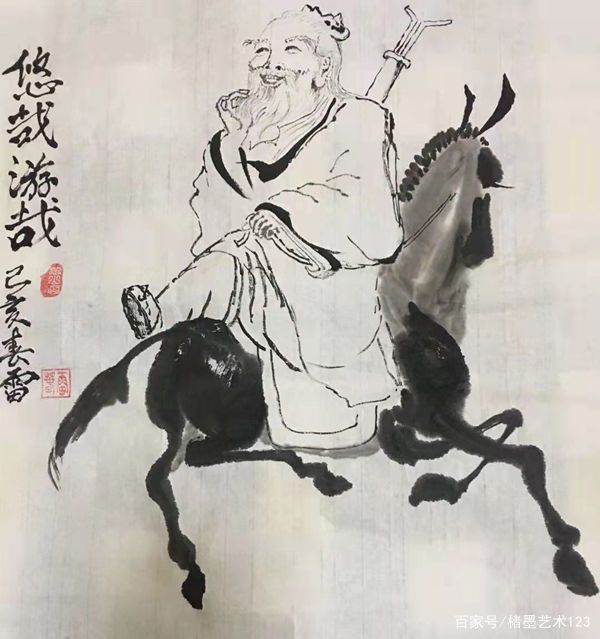 悠哉游哉
己亥春雷
百家号/楮墨艺术123